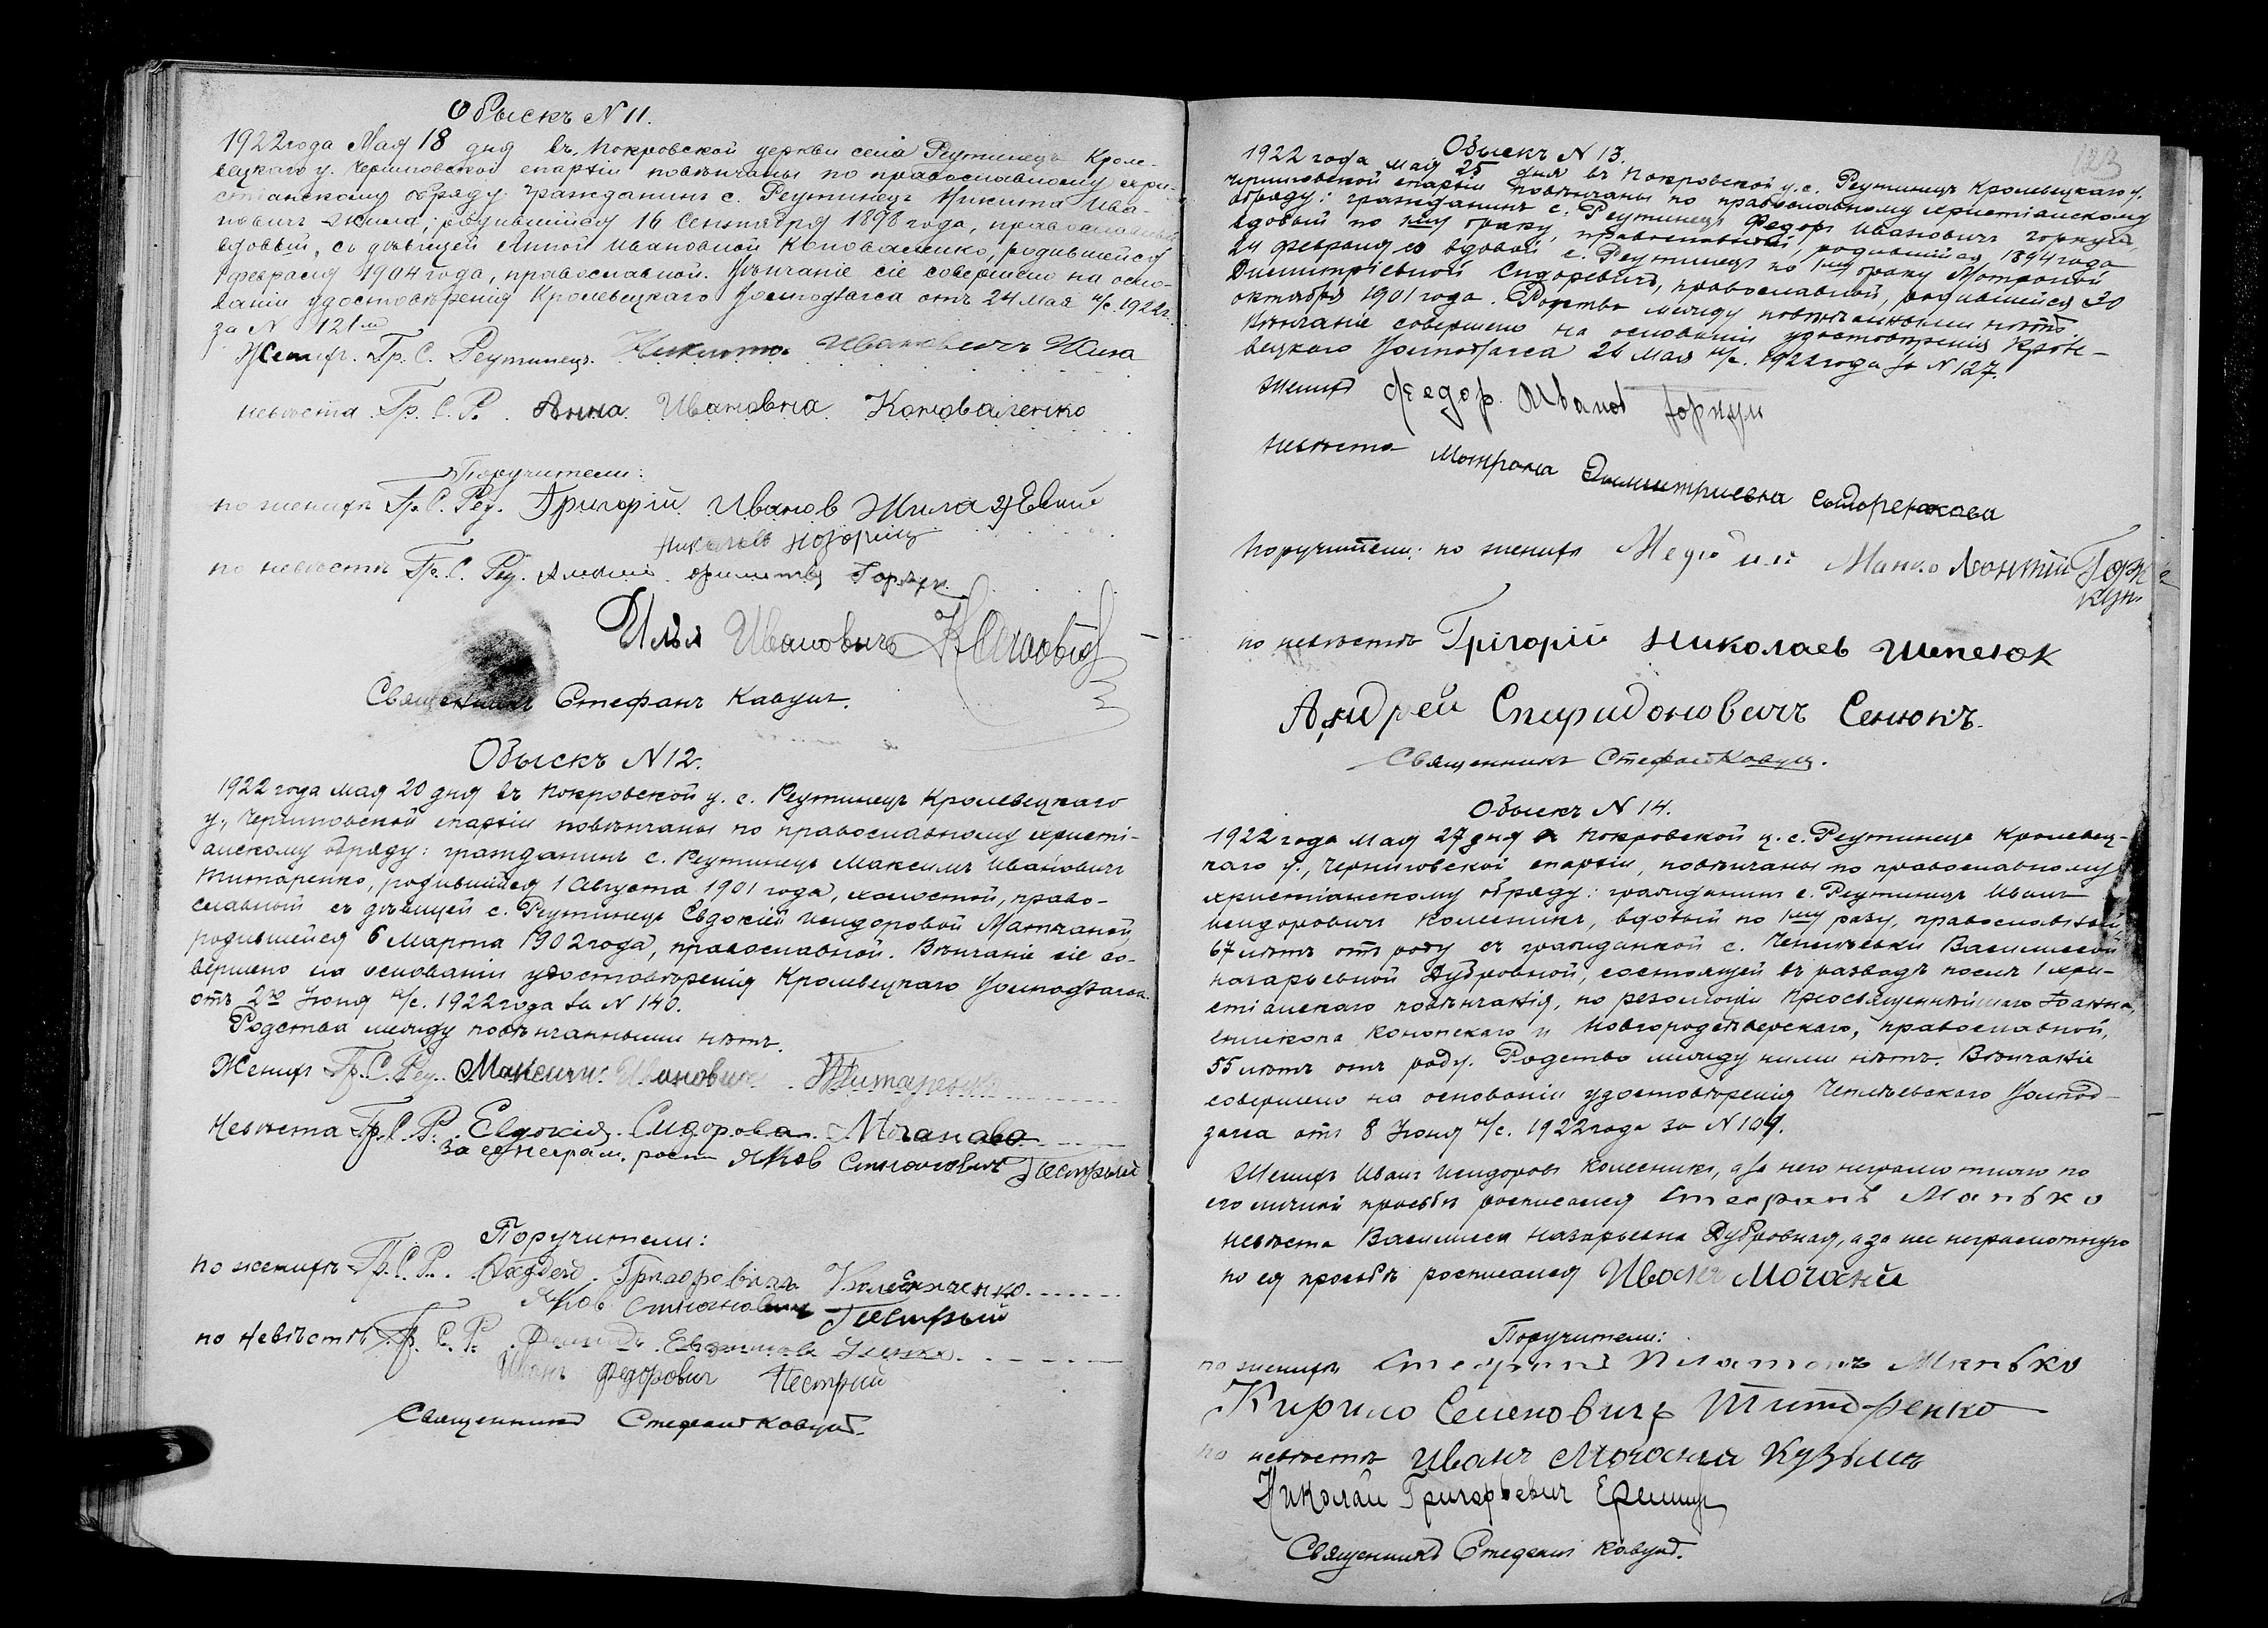 Обыскъ N 11.
1922 года Мая 18 дня въ Покровской церкви села Реутинецъ Кроле-
вецкаго у. Черниговской епархіи повѣнчаны по православному хри-
стіанскому обряду гражданинъ с. Реутинецъ Никита Ива-
новичъ Жила, родившійся 16 Сентября 1898 года, православный
вдовый, съ дѣвицей Анной Ивановной Коноваленко, родившейся
1 февраля 1904 года, православной. Вѣнчаніе сіе совершено на осно-
ваніи удостовѣренія Кролевецкаго отъ 24 Мая н/с. 1922 г.
за N 121
Женихъ Гр. С. Реутинецъ. Никита Ивановичъ Жила
невѣста Гр. С. Р. Анна Ивановна Коноваленко
Поручители:
по женихѣ Гр. С. Реу. Григорій Иванов Жила
по невѣстѣ Гр. С. Реу.
Илья Ивановичъ
Священникъ Стефанъ Кавунъ.
Обыскъ N 12.
1922 года мая 20 дня въ Покровской ц. с. Реутинецъ Кролевецкаго
у., Черниговской епархіи повѣнчаны по православному христі-
анскому обряду: гражданинъ с. Реутинецъ Максимъ Ивановичъ
Титаренко, родившійся 1 Августа 1901 года, холостой, право-
славный съ дѣвицей с. Реутинецъ Евдокіей Исидоровой Мочаной,
родившейся 6 Марта 1902 года, православной. Вѣнчаніе сіе со-
вершено на основаніи удостовѣренія Кролевецкаго
отъ 2го Іюня н/с. 1922 года за N 140.
Родства между повѣнчанными нѣтъ.
Женихъ Гр. С. Реу. Максим Иванович Титаренко
Невѣста Гр. С. Р. Евдокія Сидорова Мочанова
за неграм. росп. Яков Степанович Пестрый
Поручители:
по женихѣ Гр. С. Р. Григоровичъ
Яков Степанович Пестрый
по невѣстѣ Гр. С. Р.
Иванъ Федорович Пестрый
Священникъ Стефанъ Кавунъ.
123
Обыскъ N 13.
1922 года мая 25 дня въ Покровской ц. с. Реутинецъ Кролевецкаго у.
Черниговской епархіи повѣнчаны по православному христіанскому
обряду: гражданинъ с. Реутинецъ Федоръ Ивановичъ Горкунъ,
вдовый по 1му браку, православный, родившійся 1894 года
24 февраля со вдовой с. Реутинецъ по 1му браку Мотроной
Димитріевной Сидоревичъ, православной, родившейся 30
октября 1901 года. Родства между повѣнчанными нѣтъ.
Вѣнчаніе совершено на основаніи удостовѣренія Кроле-
вецкаго 26 Мая н/с. 1922 года за N 127.
женихъ Федор Иванов Горкун
невѣста Мотрона Димитриевна
Поручители: по женихѣ Манько Леонтій Гор-
кун
по невѣстѣ Грігорій Николаев Шепелюк
Андрей Спиридоновичъ Сенюкъ.
Священникъ Стефанъ Кавунъ.
Обыскъ N 14.
1922 года мая 27 дня въ Покровской ц. с. Реутинецъ Кролевец-
каго у., Черниговской епархіи, повѣнчаны по православному
христіанскому обряду: гражданинъ с. Реутинецъ Иванъ
Исидоровичъ Колесникъ, вдовый по 1му разу, православный,
67 лѣтъ отъ роду съ гражданкой с. Василисой
Назарьевной Дубровной, состоящей въ разводѣ послѣ 1 хри-
стіанскаго повѣнчанія, по резолюціи Преосвященнѣйшаго Іоанна,
епископа Конотопскаго и Новгородсѣверскаго, православной,
55 лѣтъ отъ роду. Родства между ними нѣтъ. Вѣнчаніе
совершено на основаніи удостовѣренія
отъ 8 Іюня н/с. 1922 года за N 109.
Женихъ Иванъ Исидоровъ Колесникъ, а за него неграмотнаго по
его личной просьбѣ росписался Стефанъ Манько
невѣста Василиса Назарьевна Дубровная, а за нее неграмотную
по ея просьбѣ росписался Иванъ Мочаній
Поручители:
по женихѣ Стефанъ Платонъ Манько
Кирило Семеновичъ Титаренко
по невѣстѣ Иванъ Мочаній Кузьмъ
Николай Григорьевич
Священникъ Стефанъ Кавунъ.